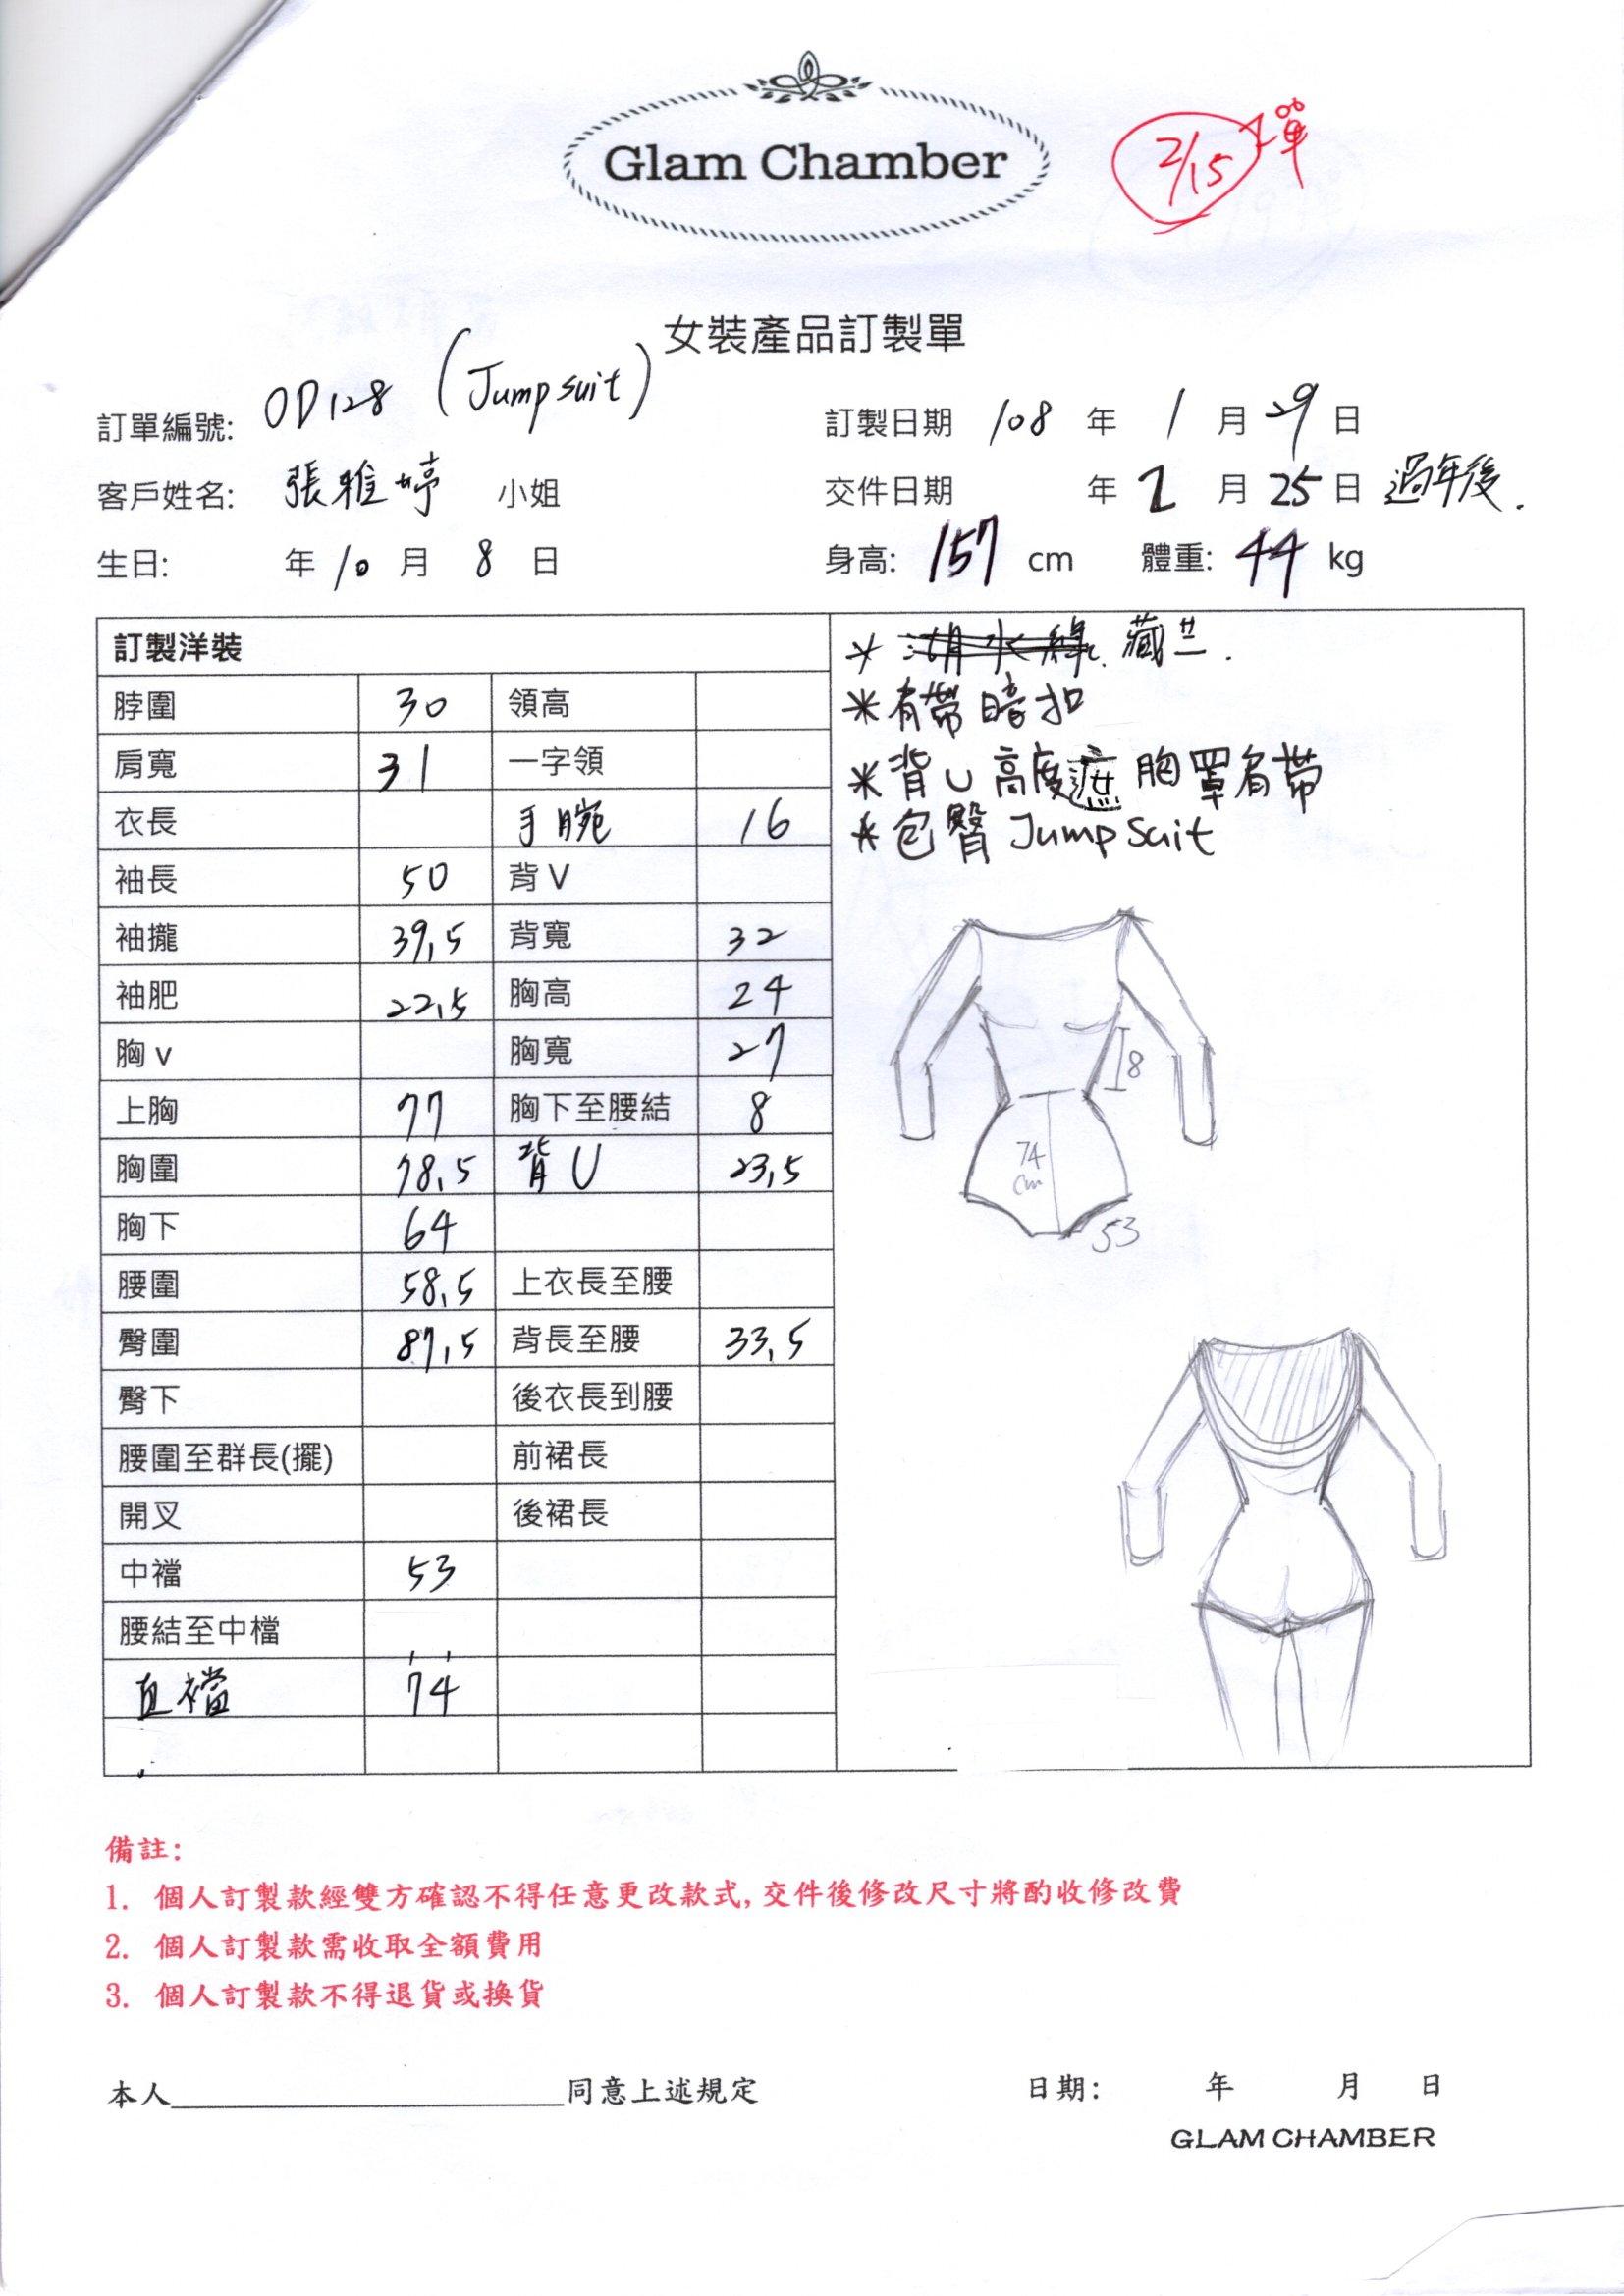 Glam Chamber
2/15 上單
女裝產品訂製單
訂單編號: OD128 (Jumpsuit)
訂製日期 108 年 1 月 29 日
客戶姓名: 張雅婷 小姐
交件日期 年 2 月 25 日 過年後.
生日: 年 10 月 8 日
身高: 157 cm 體重: 44 kg
訂製洋裝
脖圍 30 領高
肩寬 31 一字領
衣長 手腕 16
袖長 50 背 V
袖攏 39,5 背寬 32
袖肥 22,5 胸高 24
胸 v 胸寬 27
上胸 77 胸下至腰結 8
胸圍 78,5 背 U 23,5
胸下 64
腰圍 58,5 上衣長至腰
臀圍 87,5 背長至腰 33,5
臀下 後衣長到腰
腰圍至群長(擺) 前裙長
開叉 後裙長
中襠 53
腰結至中檔
直襠 74
* 湖水綠. 藏兰.
*肩帶暗扣
*背U高度遮胸罩肩帶
*包臀 Jumpsuit
8
74
cm
53
備註:
1. 個人訂製款經雙方確認不得任意更改款式,交件後修改尺寸將酌收修改費
2. 個人訂製款需收取全額費用
3. 個人訂製款不得退貨或換貨
本人____________同意上述規定
日期: 年 月 日
GLAM CHAMBER